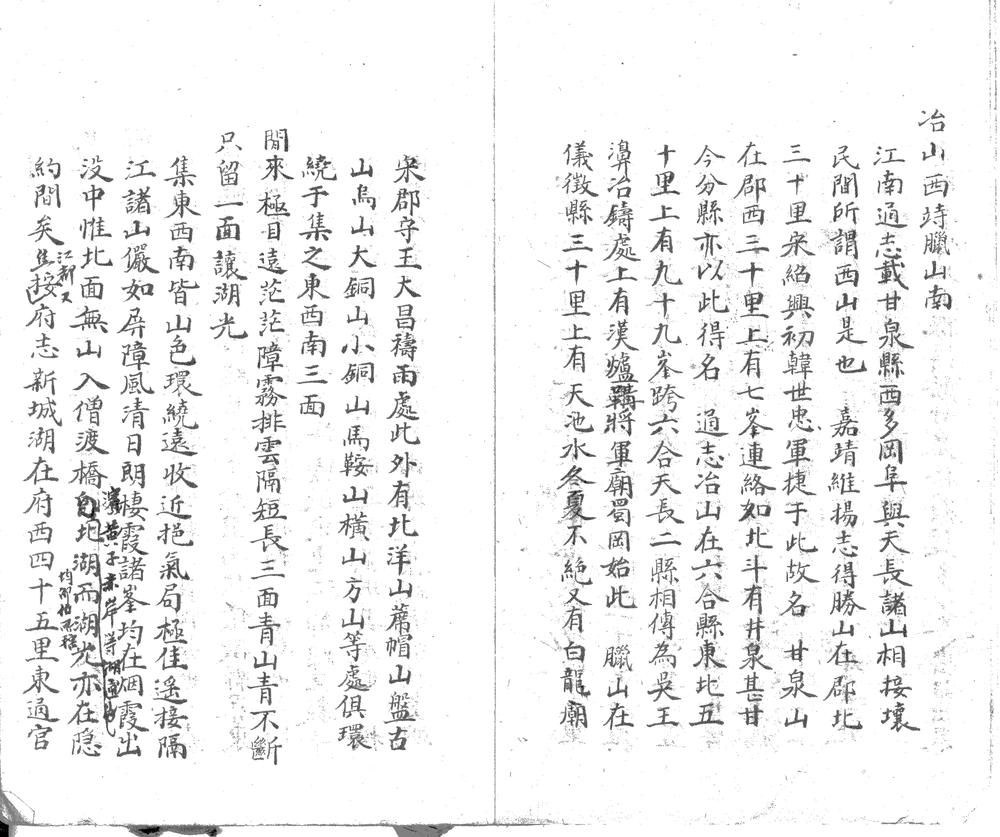 冶山西峙臘山南
江南通志載甘泉縣西多岡阜與天長諸山相接壤
民間所謂西山是也　嘉靖維揚志得勝山在郡北
三十里宋紹興初韓世忠軍捷于此故名　甘泉山
在郡西三十里上有七峯連絡如北斗有井泉甚甘
今分縣亦以此得名　通志冶山在六合縣東北五
十里上有九十九峯跨六合天長二縣相傳為吳王
濞冶鑄處上有漢爐鞲將軍廟蜀岡始此　臘山在
儀徵縣三十里上有天池水冬夏不絕又有白龍廟
宋郡守王大昌禱雨處此外有北洋山蓆帽山盤古
山烏山大銅山小銅山馬鞍山橫山方山等處俱環
繞于集之東西南三面
閒來極目遠茫茫障霧排雲隔短長三面青山青不斷
只留一面讓湖光
集東西南皆山色環繞遠收近挹氣局極佳遙接隔
江諸山儼如屏障風清日朗棲霞諸峯均在烟霞出
没中惟北面無山入僧渡橋包地湖而湖光亦在隐
濱黄子赤岸等湖
約間矣按府志新城湖在府西四十五里東通官
江都又